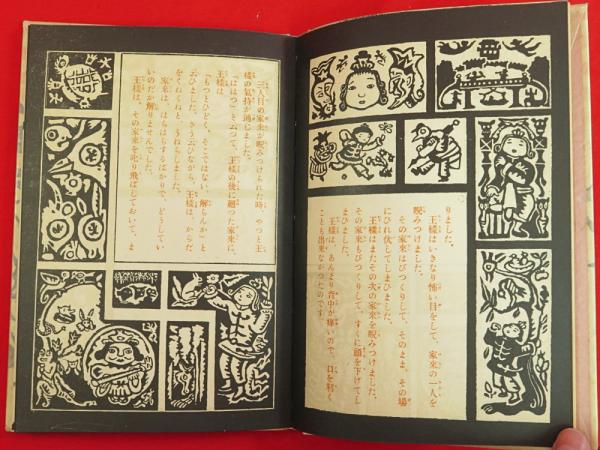 りました。
王様はいきなり怖い目をして、家来の一人を
睨みつけました。
その家来はびつくりして、そのまま、その場
にひれ伏してしまひました。
王様はまたその次の家来を睨みつけました。
その家来もびつくりして、すぐに頭を下げてし
まひました。
王様は、あんまり背中が痒いので、口を利く
ことも出来なかつたのです。
三人目の家来が睨みつけられた時、やつと王
様の気持が通じました。
「ははつ」と云つて、王様の後に廻つた家来に、
王様は
「もつとひどく、そこではない、解らんか」と
云ひました。さう云ひながら、王様は、からだ
をくねくねと、うねらしました。
家来は、はらはらするばかりで、どうしてい
いのだか解りませんでした。
王様は、その家来を叱り飛ばしておいて、よ